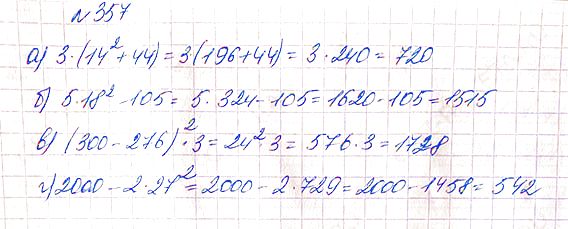 №357
а) 3·(14²+44)=3·(196+44)= 3·240=720
б) 5·18²-105= 5·324-105=1620-105=1515
в) (300-276)²·3=24²·3= 576·3=1728
г) 2000-2·27²=2000-2·729=2000-1458=542